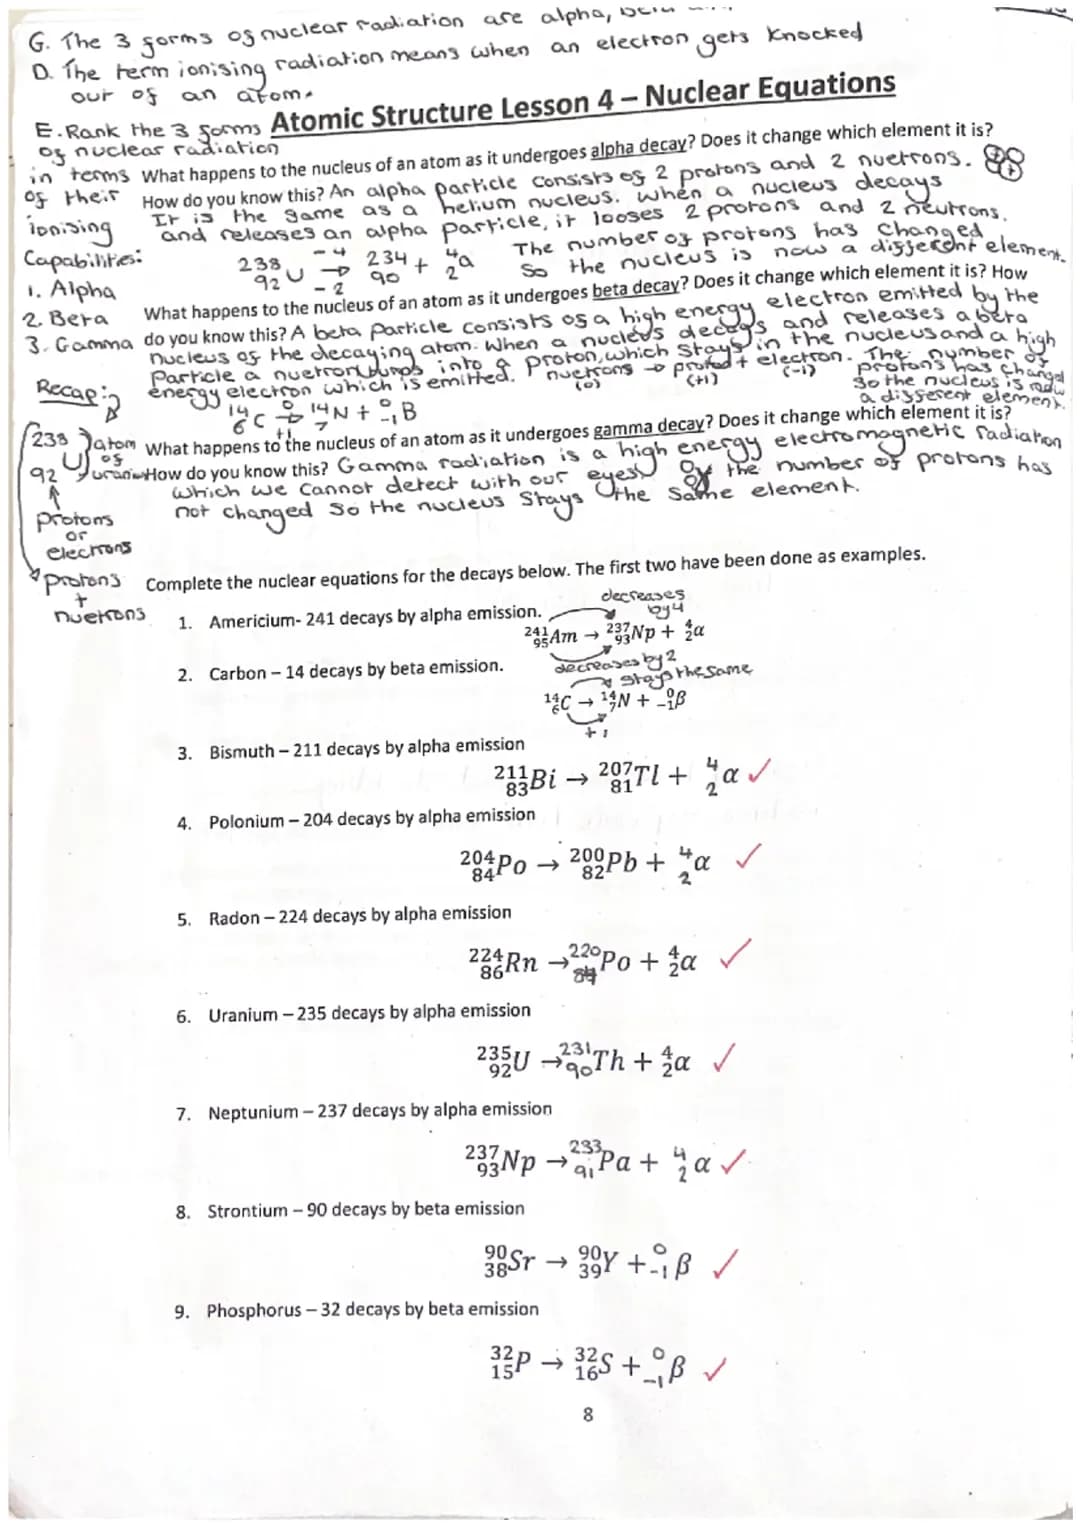 G. The 3 forms of nuclear radiation are alpha,
D. The term ionising radiation means when an electron gets knocked
out of an atom.
Atomic Structure Lesson 4 – Nuclear Equations
E. Rank the 3 forms
of nuclear radiation
in terms
of their
ionising
Capabilities:
1. Alpha
2. Beta
3. Gamma
What happens to the nucleus of an atom as it undergoes alpha decay? Does it change which element it is?
How do you know this? An alpha particle consists of 2 protons and 2 nuetrons.
It is the same as a helium nucleus. when a nucleus decays
and releases an alpha particle, it looses 2 protons and 2 neutrons.
The number of protons has changed
So the nucleus is now a different element.
238 92 U → 234 90 + 4 2 α
- 4
- 2
What happens to the nucleus of an atom as it undergoes beta decay? Does it change which element it is? How
do you know this? A beta particle consists of a high energy electron emitted by the
nucleus of the decaying atom. When a nucleus decays and releases a beta
Particle a nuetron turns into a proton, which stays in the nucleus and a high
energy electron which is emitted. nuetrons → proton + electron. The number of
(0) (+1) (-1)
protons has changed
So the nucleus is now
a different element.
14 6 C → 14 7 N + 0 -1 B
0
+1
Recap:
238 92 U
atom of uranium
protons
or
electrons
protons
+
nuetrons
What happens to the nucleus of an atom as it undergoes gamma decay? Does it change which element it is?
How do you know this? Gamma radiation is a high energy electromagnetic radiation
which we cannot detect with our eyes. the number of protons has
not changed so the nucleus stays the same element.
Complete the nuclear equations for the decays below. The first two have been done as examples.
1. Americium- 241 decays by alpha emission.
decreases
by 4
241 95 Am → 237 93 Np + 4 2 α
decreases by 2
2. Carbon – 14 decays by beta emission.
stays the same
14 6 C → 14 7 N + 0 -1 β
+1
3. Bismuth – 211 decays by alpha emission
211 83 Bi → 207 81 Tl + 4 2 α ✓
4. Polonium – 204 decays by alpha emission
204 84 Po → 200 82 Pb + 4 2 α ✓
5. Radon – 224 decays by alpha emission
224 86 Rn → 220 84 Po + 4 2 α ✓
6. Uranium – 235 decays by alpha emission
235 92 U → 231 90 Th + 4 2 α ✓
7. Neptunium – 237 decays by alpha emission
237 93 Np → 233 91 Pa + 4 2 α ✓
8. Strontium – 90 decays by beta emission
90 38 Sr → 90 39 Y + 0 -1 β ✓
9. Phosphorus – 32 decays by beta emission
32 15 P → 32 16 S + 0 -1 β ✓
8